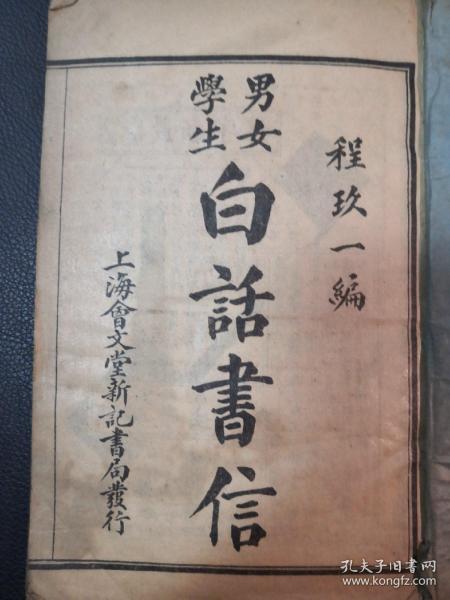 程玫一編
男女學生
白話書信
上海會文堂新記書局發行
孔夫子旧书网
www.kongfz.com